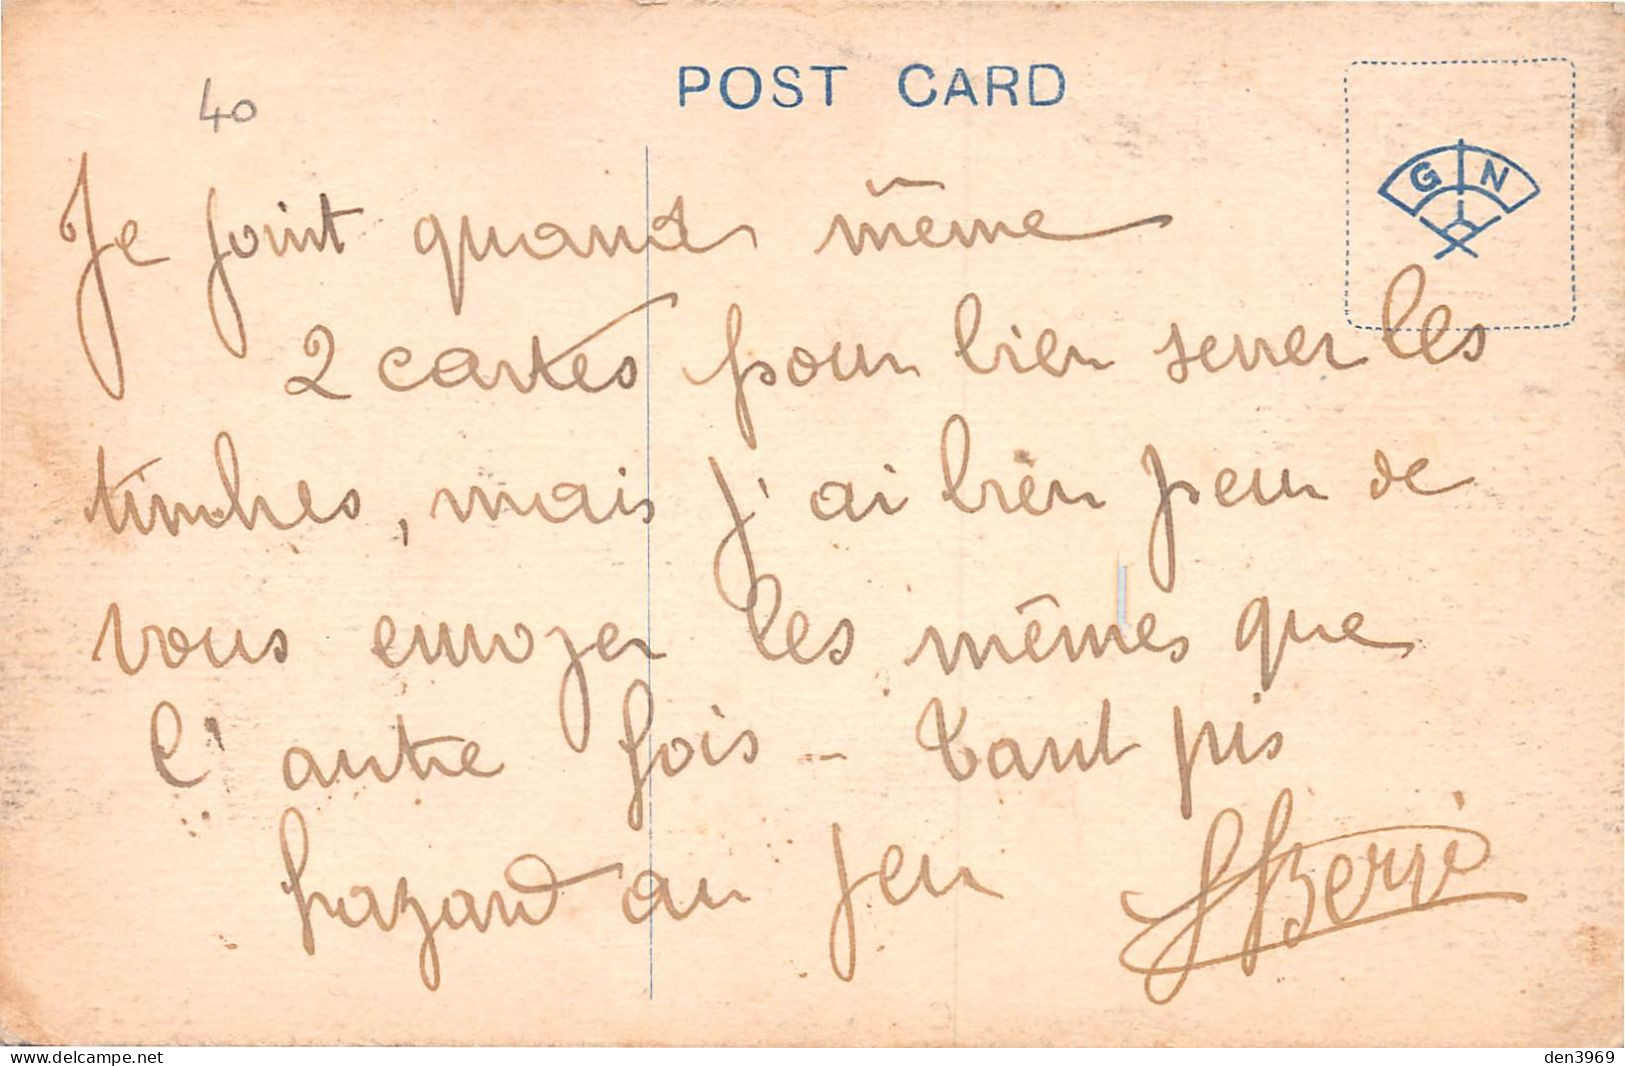 POST CARD
40
G N
Je joint quand même
2 cartes pour bien serrer les
timbres, mais j'ai bien peur de
vous envoyer les mêmes que
l'autre fois - tant pis
hazard au jeu
www.delcampe.net
den3969